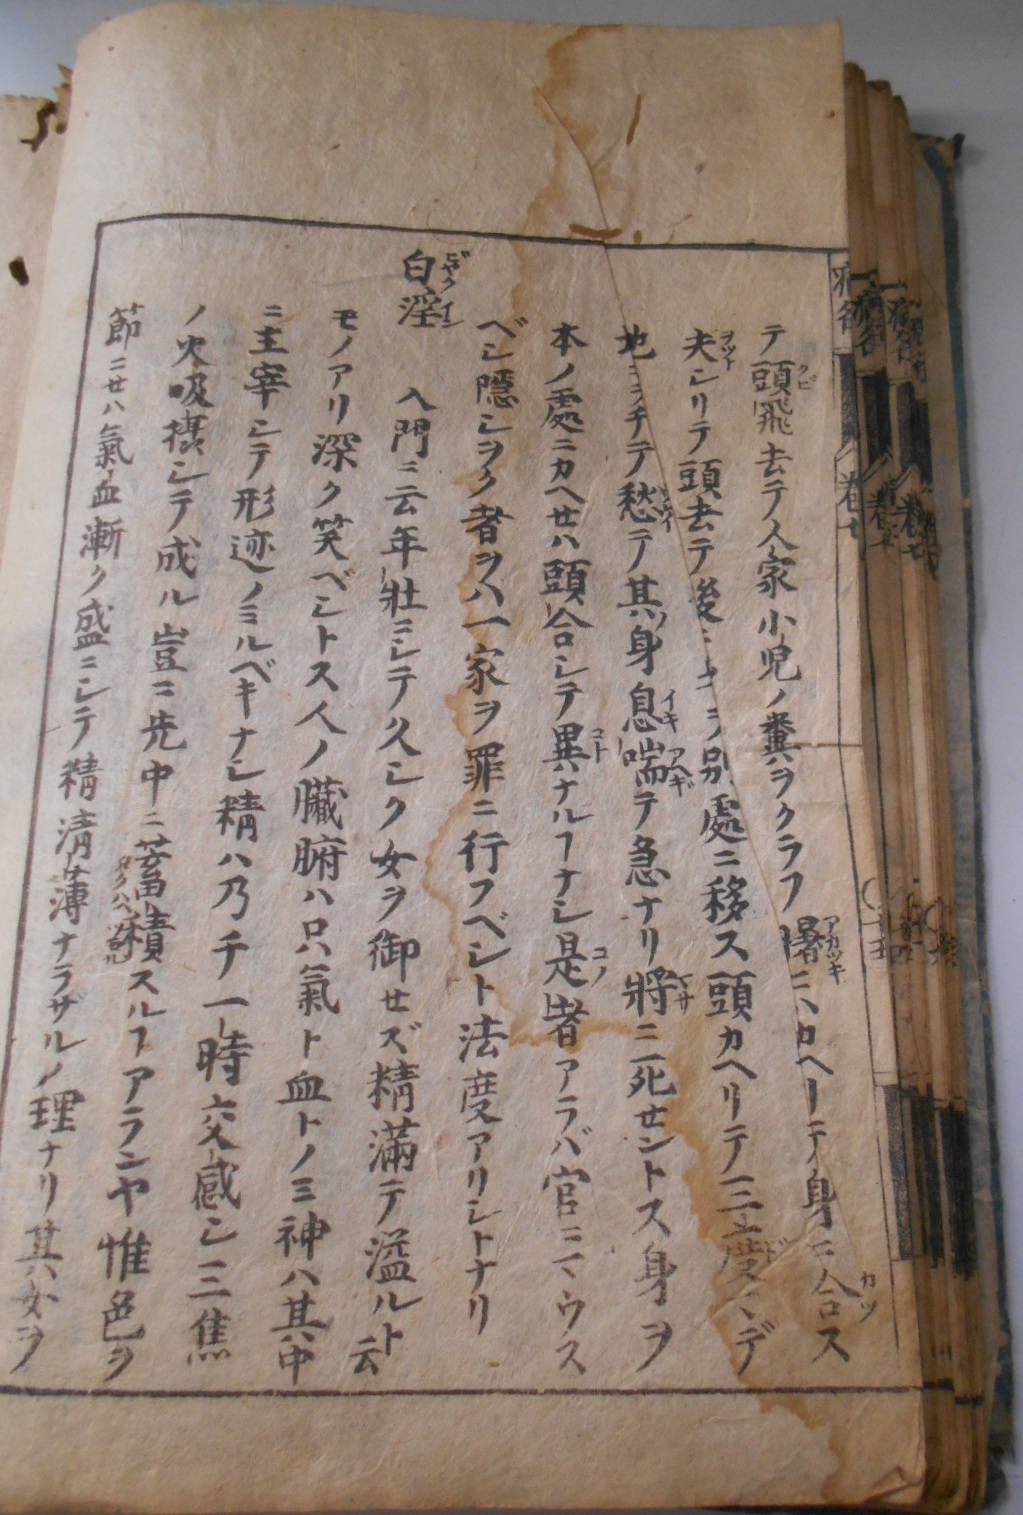 テ頭飛去テ人家小児ノ糞ヲクラフ曙ニハカヘーテ身ニ合ス
夫シリテ頭去テ後ニ ヲ別處ニ移ス頭カヘリテ三度 デ
地ニヲチテ愁テ其身息喘テ急ナリ將ニ死セントス身ヲ
本ノ處ニカヘセハ頭合シテ異ナルヿナシ是者アラバ官ニ ウス
ベシ隱シヲク者ヲハ一家ヲ罪ニ行フベシト法度アリシトナリ
白淫 入門ニ云年壯ニシテ久シク女ヲ御セズ精滿テ溢ルト云
モノアリ深ク笑ベシトス人ノ臓腑ハ只氣ト血トノミ神ハ其中
ニ主宰シテ形迹ノミルベキナシ精ハ乃チ一時交感シ三焦
ノ火吸 シテ成ル豈ニ先中ニ蓄積スルヿアランヤ惟色ヲ
節ニセハ氣血漸ク盛ニシテ精清薄ナラザルノ理ナリ其女ヲ
巻七